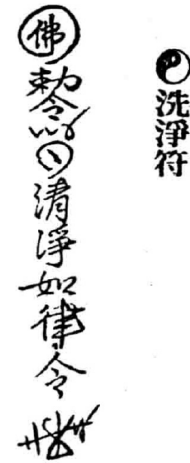 洗淨符
佛勅令清淨如律令